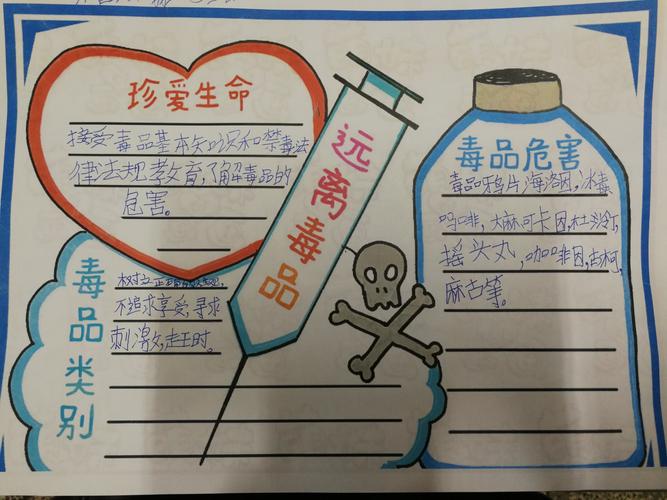 珍爱生命
接受毒品基本知识和禁毒法
律法规教育,了解毒品的
危害。
远离毒品
毒品类别
树立正确
不追求享受,寻求
刺激,赶王时。
毒品危害
毒品鸦片海洛因,冰毒
吗啡,大麻可卡因,杜冷丁,
摇头丸,咖啡因,古柯,
麻古等。